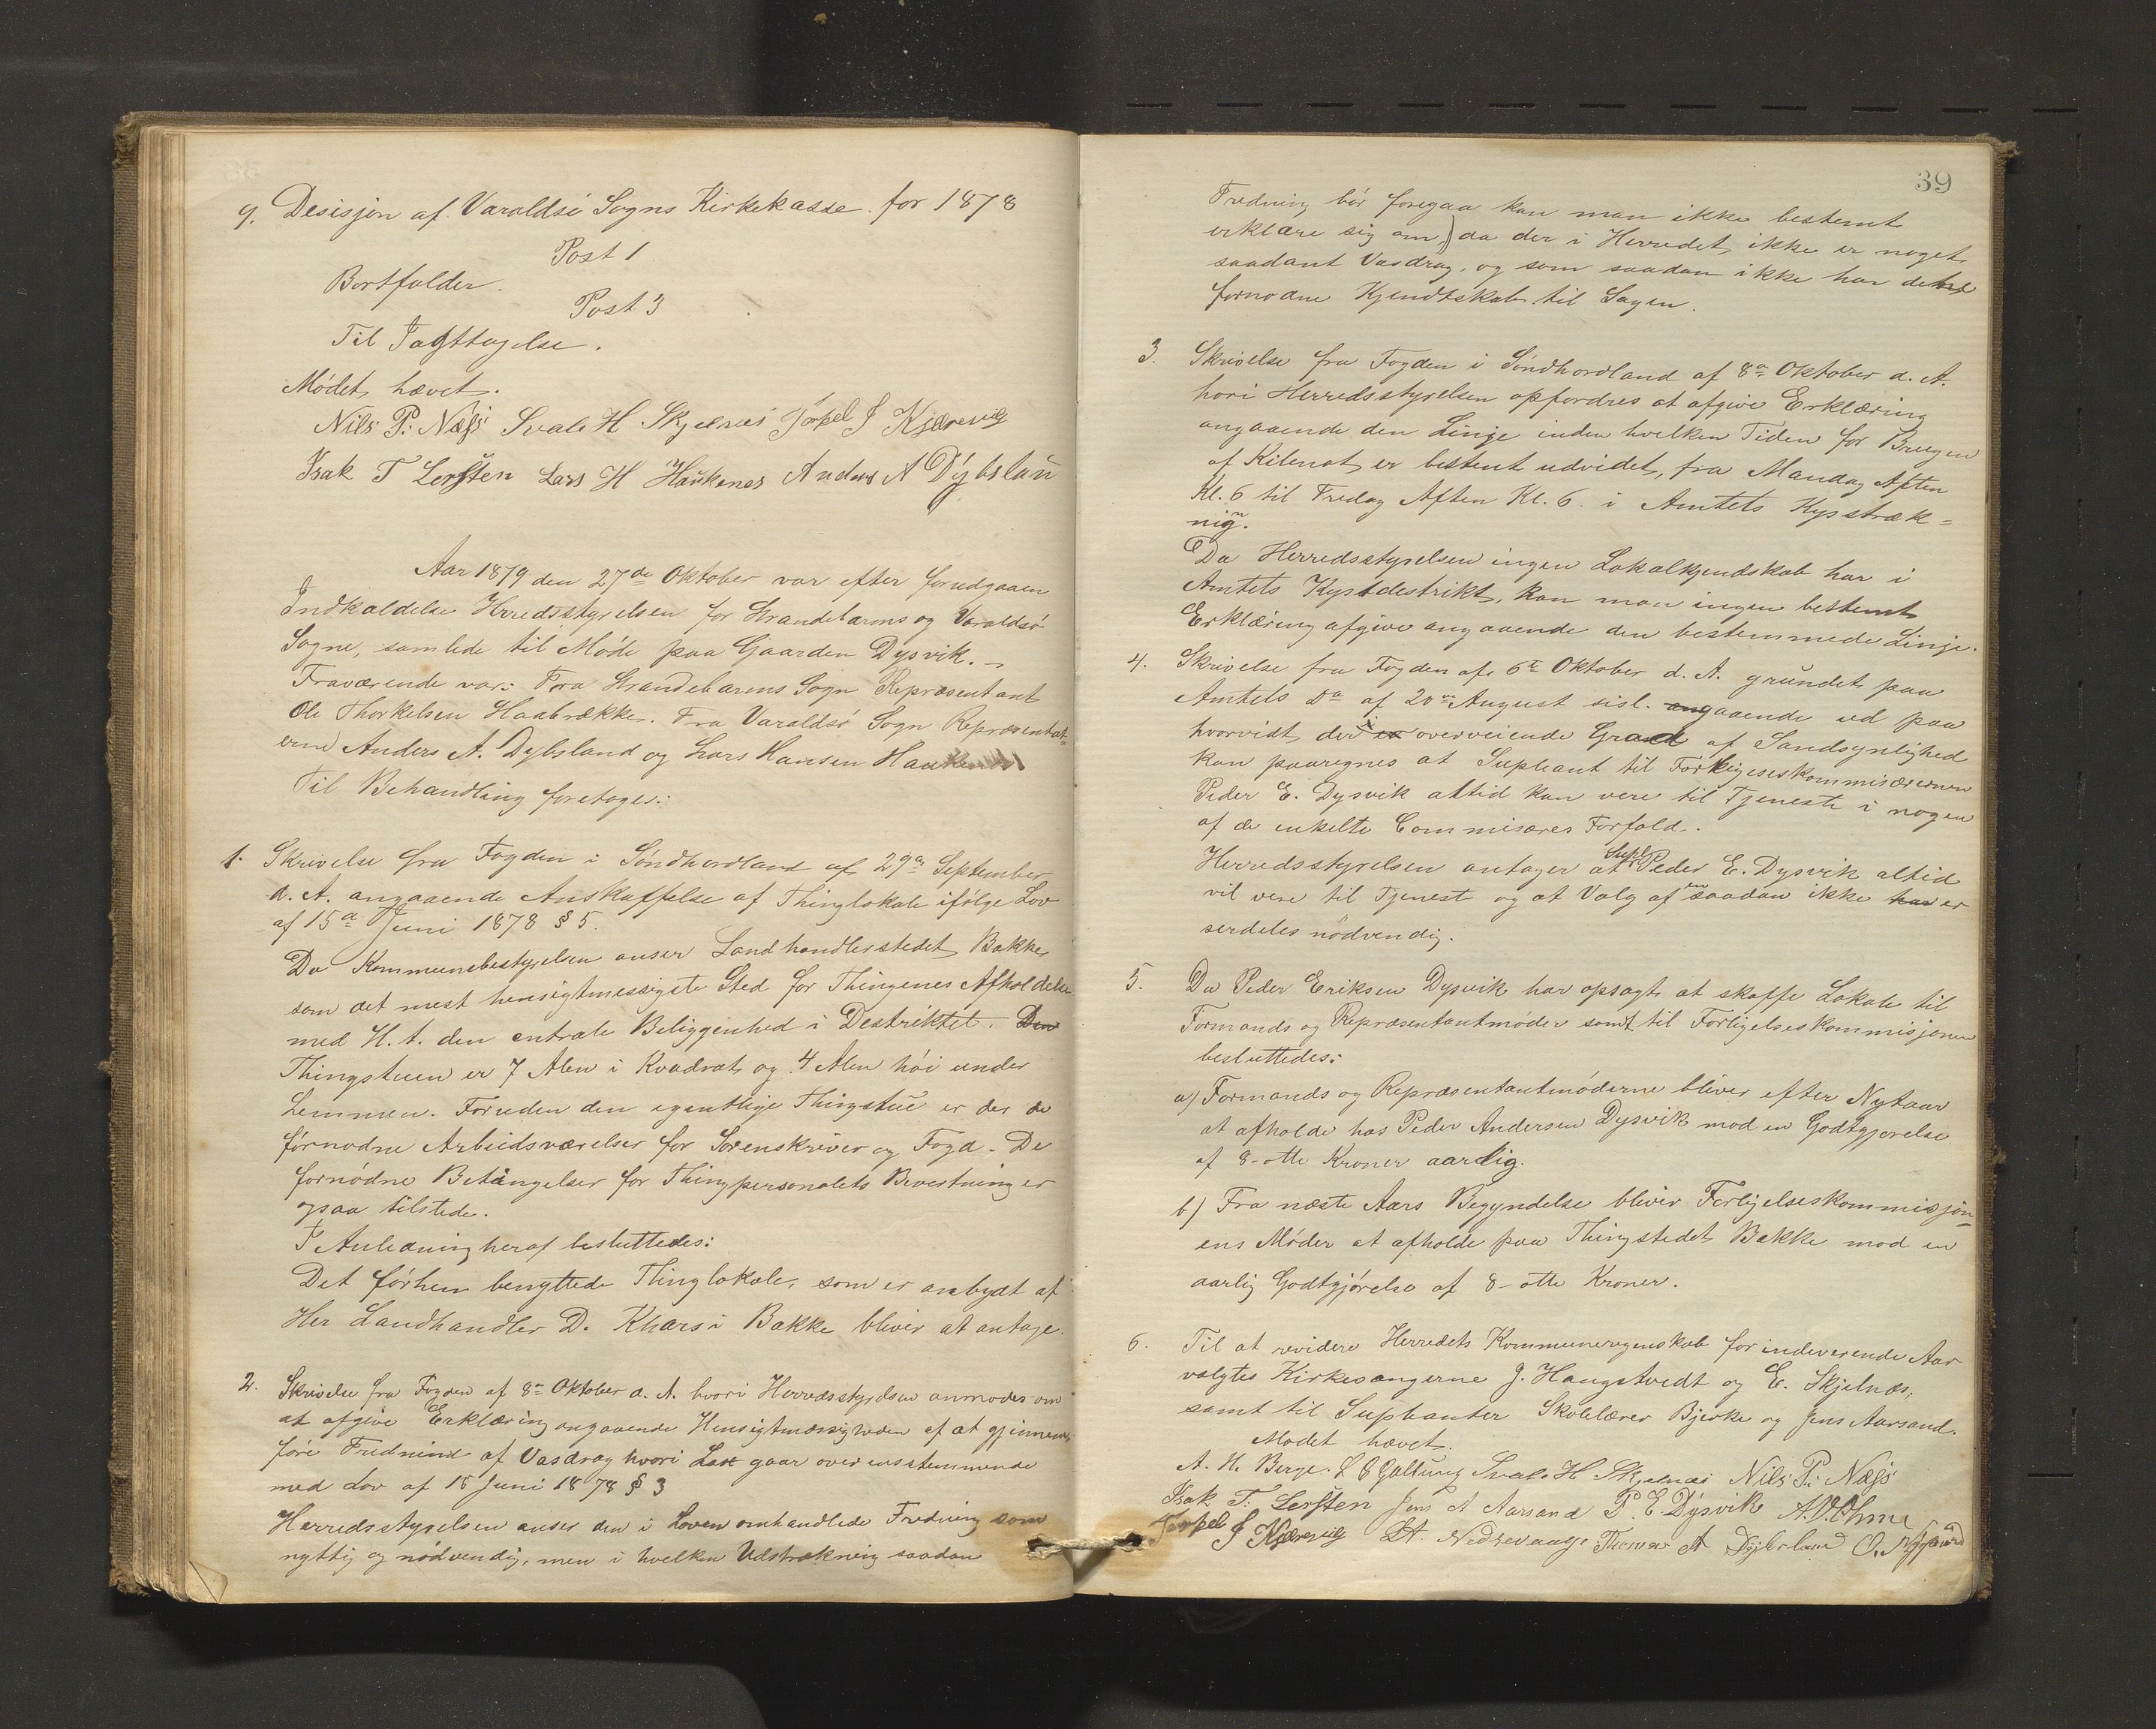 9. Desisjon af Varaldsö Sogns Kirkekasse for 1878
Post 1
Bortfalder.
Post 3
Til Iagttagelse.
Mödet hævet.
Nils P: Næss Svale H Skjelnæs Torkel J Kjærevig
Isak T Lersten Lars H Haukenes Anders A Dybslan
Aar 1879 den 27de Oktober var efter forudgaaen
Indkaldelse Herredsstyrelsen for Strandebarms og Varaldsö
Sogne, samlede til Möde paa Gaarden Dysvik. –
Fraværende var: Fra Strandebarms Sogn Repræsentant
Ole Thorkelsen Haabrække. Fra Varaldsö Sogn Repræsentat-
erne Anders A. Dybsland og Lars Hansen Haukenes
Til Behandling foretoges:
1. Skrivelse fra Fogden i Söndhordland af 29de September
d. A. angaaende Anskaffelse af Thinglokale ifölge Lov
af 15de Juni 1878 § 5.
Da Kommunebestyrelsen anser Landhandlerstedet Bakke
som det mest hensigtmessigste Sted for Thingenes Afholdelse
med H. t. den entrale Beliggenhed i Destriktet. Den
Thingstuen er 7 Alen i Kvadrat og 4 Alen höi under
Lemmen. Foruden den egentlige Thingstue er der de
förnodne Arbeidsværelser for Sorenskriver og Fogd. De
fornödne Betingelser for Thingpersonalets Bevertning er
ogsaa tilstede.
I Anledning heraf besluttedes:
Det förhen benyttede Thinglokale, som er anbydt af
Her Landhandler D. Khars i Bakke bliver at antage.
2. Skrivelse fra Fogden af 8de Oktober d. A. hvori Herredsstyrelsen anmodes om
at afgive Erklæring angaaende Hensigtmæsigheden af at gjennem-
före Fredning af Vasdrag hvori Lax gaar overensstemmende
med Lov af 18 Juni 1878 § 3
Herredsstyrelsen anser den i Loven omhandlede Fredning som
nyttig og nödvendig, men i hvelken Udstrækning saadan
39
Fredning bör foregaa kan man ikke bestemt
erklære sig om, da der i Herredet ikke er noget
saadant Vasdrag, og som saadan ikke har det
fornodne Kjendtskab til Sagen.
3. Skrivelse fra Fogden i Söndhordland af 8de Oktober d. A.
hori Herredsstyrelsen opfordres at afgive Erklæring
angaaende den Linje inden hvelken Tiden for Brugen
af Kilenot er bestemt udvidet, fra Mandag Aften
Kl. 6 til Fredag Aften Kl. 6. i Amtets Kysstræk=
nign.
Da Herredsstyrelsen ingen Lokalkjendskab har i
Amtets Kystdestrikt, kan man ingen bestemt
Erklæring afgive angaaende den bestemmede Linje.
4. Skrivelse fra Fogden af 6te Oktober d. A. grundet paa
Amtets Do af 20de August sisl. angaaende ud paa
hvorvidt der i er overveiende Grad af Sandsynlighed
kan paaregnes at Supleant til Forligeseskommisærerne
Peder E. Dysvik altid kan vere til Tjeneste i nogen
af de enkelte Commisæres Forfald.
Herredsstyrelsen antager at Supl. Peder E. Dysvik altid
vil vere til Tjenest og at Valg af en saadan ikke har er
serdeles nödvendig.
5. Da Peder Eriksen Dysvik har opsagt at skaffe Lokale til
Formands og Repræsentantmöder samt til Forligelseskommisjonen
besluttedes:
a) Formands og Repræsentantmöderne bliver efter Nytaar
at afholde hos Peder Andersen Dysvik mod en Godtgjorelse
af 8- otte Kroner aarlig.
b) Fra næste Aars Begyndelse bliver Forligelseskommisjon-
ens Möder at afholde paa Thingstedet Bakke mod en
aarlig Godtgjörelse af 8- otte Kroner.
6. Til at revidere Herredets Kommuneregnskab for indeverende Aar
valgtes Kirkesangerne J. Haugstvedt og E. Skjelnæs,
samt til Supleanter Skolelærer Bjerke og Jens Aarsand.
Modet hævet.
A. H. Berge. L G Galtung Svale H. Skjelnæs Nils P: Næss
Isak T: Lersten Jens A Aarsand P. E Dysvik A. V. Ohm
Torkel J Kjærevig Nedrevaage Thomas A Dybsland O. Nygaard